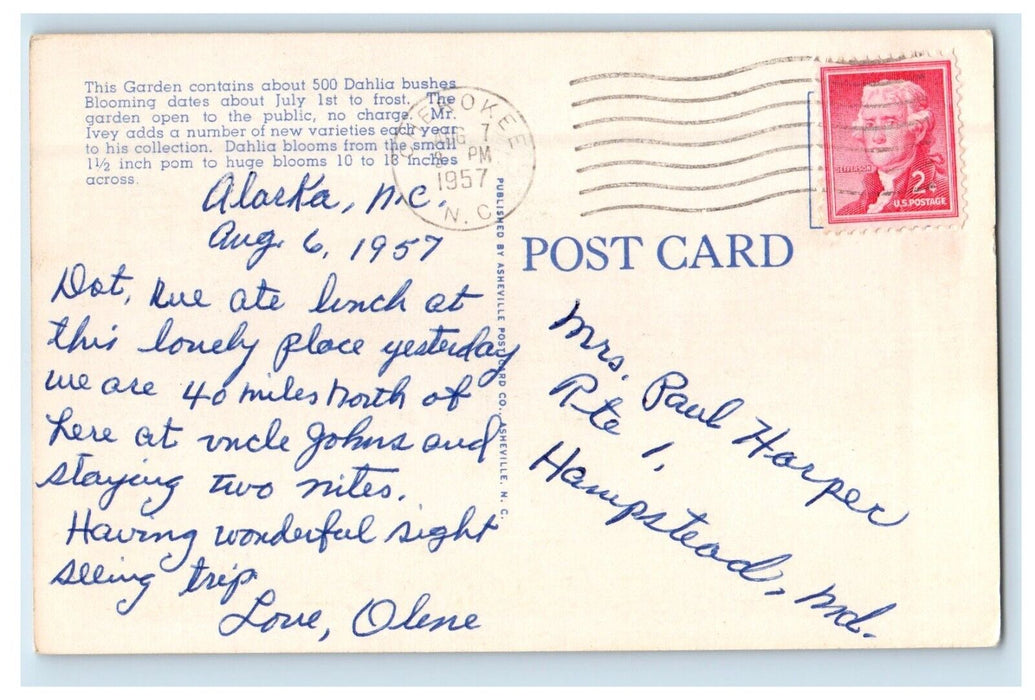 This Garden contains about 500 Dahlia bushes
Blooming dates about July 1st to frost. The
garden open to the public, no charge. Mr.
Ivey adds a number of new varieties each year
to his collection. Dahlia blooms from the small
1½ inch pom to huge blooms 10 to 18 inches
across.
CHEROKEE
AUG 7
PM
1957
N.C.
JEFFERSON
2¢
U.S. POSTAGE
POST CARD
PUBLISHED BY ASHEVILLE POST CARD CO., ASHEVILLE, N. C.
Alarka, N.C.
Aug. 6, 1957
Dot, We ate lunch at
this lonely place yesterday
we are 40 miles North of
here at uncle Johns and
staying two nites.
Having wonderful sight
seeing trip
Love, Olene
Mrs. Paul Harper
Rte 1,
Hampstead, Md.